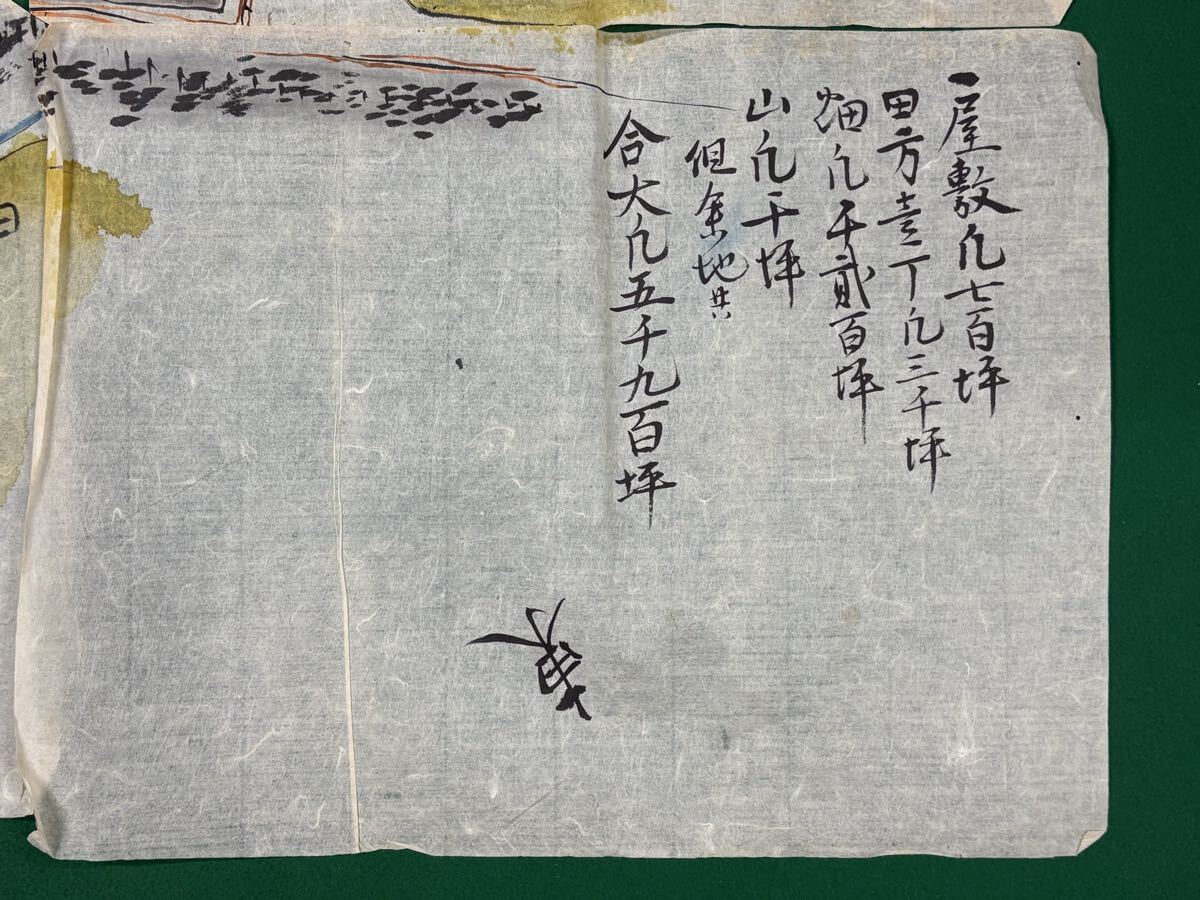 一屋敷凢七百坪
田方壹丁凢三千坪
畑凢千貳百坪
山凢千坪
但余地共
合大凢五千九百坪